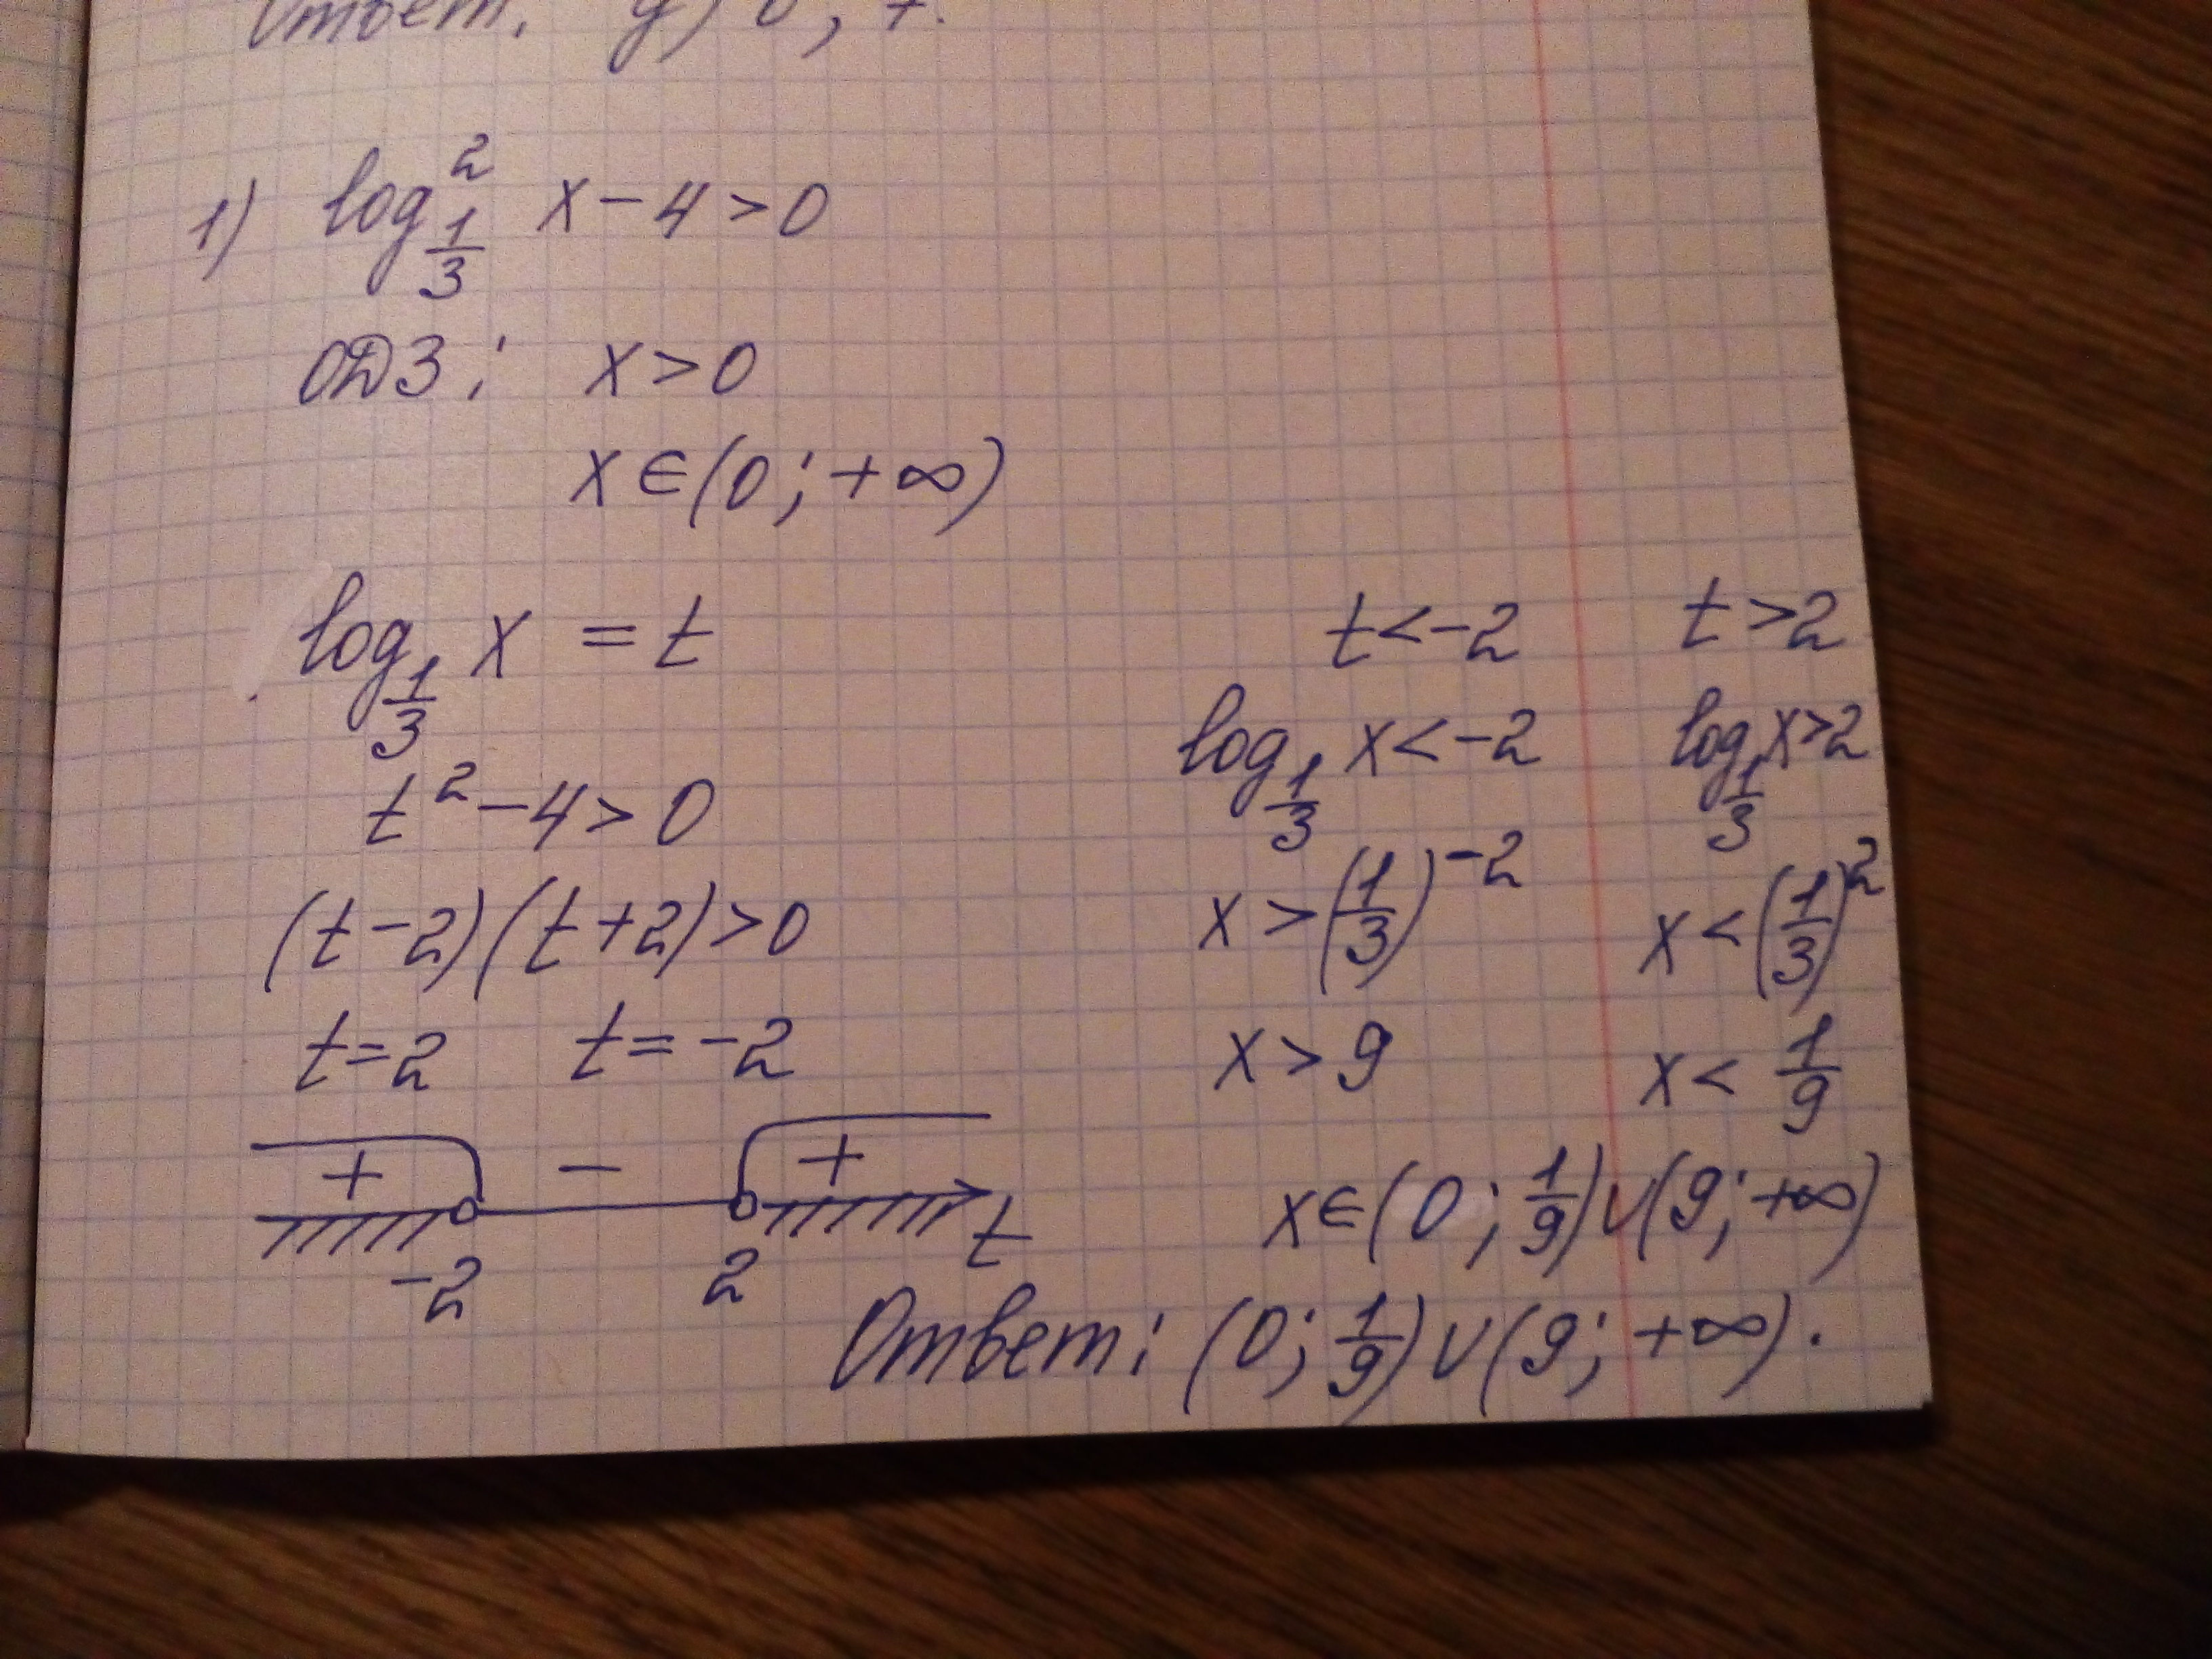 Ответ. g) 0, 7.
1) log²_{1/3} x - 4 > 0
ОДЗ: x > 0
x ∈ (0; +∞)
log_{1/3} x = t
t² - 4 > 0
(t - 2)(t + 2) > 0
t = 2 t = -2
+ - +
-2 2 t
t < -2 t > 2
log_{1/3} x < -2 log_{1/3} x > 2
x > (1/3)^{-2} x < (1/3)^2
x > 9 x < 1/9
x ∈ (0; 1/9) ∪ (9; +∞)
Ответ: (0; 1/9) ∪ (9; +∞).